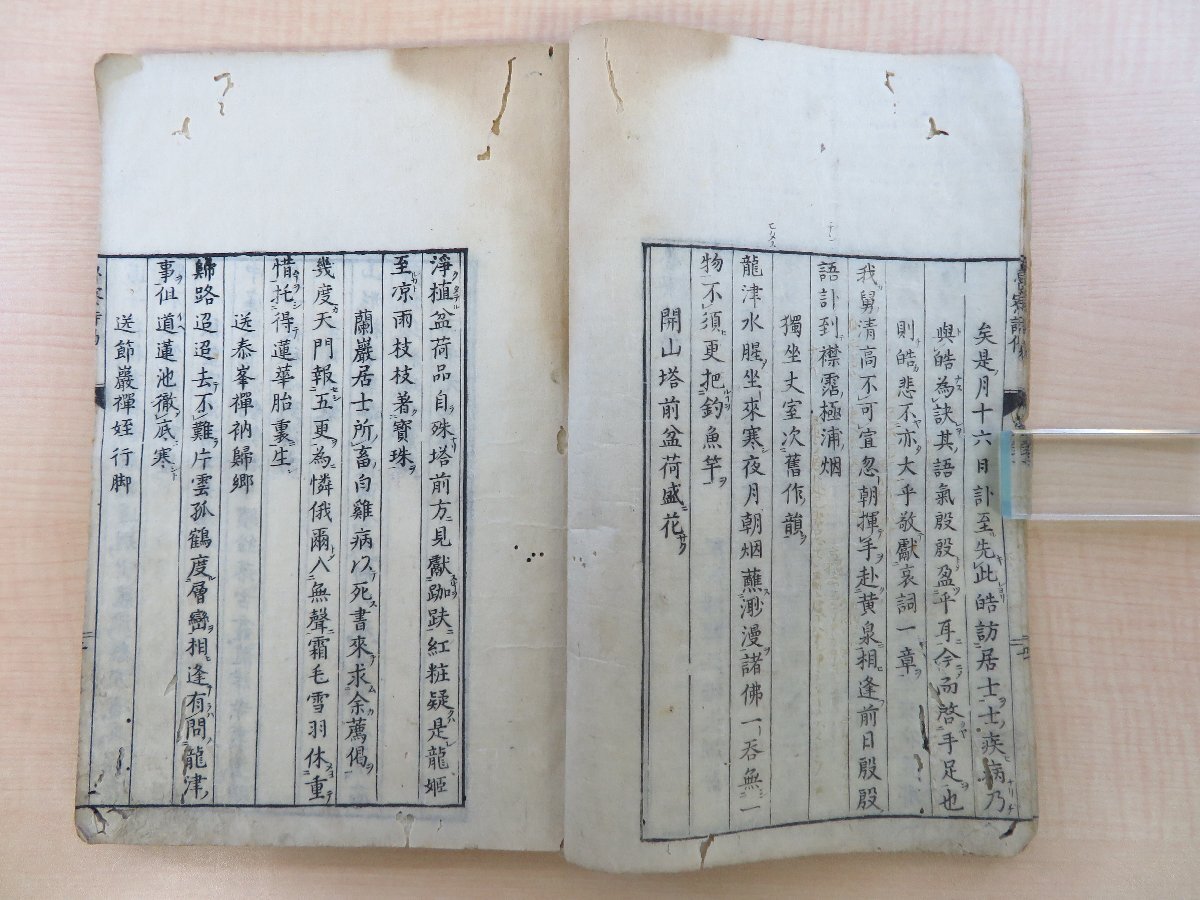 矣是月十六日訃至先此皓訪居士士疾病乃
與皓為訣其語氣殷殷盈乎耳今而啓手足也
則皓悲不亦大乎敬獻哀詞一章
我舅清高不可宣忽朝揮手赴黄泉相逢前日殷殷
語訃到襟霑極浦烟
獨坐丈室次舊作韻
龍津水腥坐來寒夜月朝烟蘸渺漫諸佛一吞無一
物不須更把釣魚竿
開山塔前盆荷盛花
淨植盆荷品自殊塔前方見獻跏趺紅粧疑是龍姬
至凉雨枝枝著寶珠
蘭巖居士所畜白雞病以死書來求余薦偈
幾度天門報五更為憐俄爾入無聲霜毛雪羽休重
惜托得蓮華胎裏生
送泰峯禪衲歸鄉
歸路迢迢去不難片雲孤鶴度層巒相逢有問龍津
事但道蓮池徹底寒
送節巖禪姪行脚